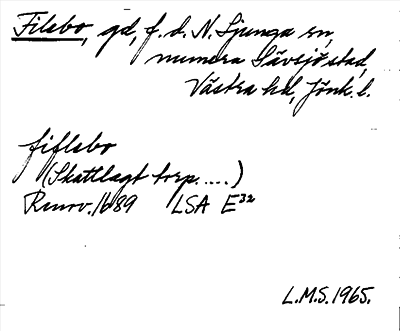 Filsbo, gd, f. d. N. Ljunga sn,
numera Sävsjö stad,
Västra hd, Jönk. l.
fiflsbo
(Skattlagt torp.....)
Renov. 1689 LSA E³²
L.M.S. 1965.